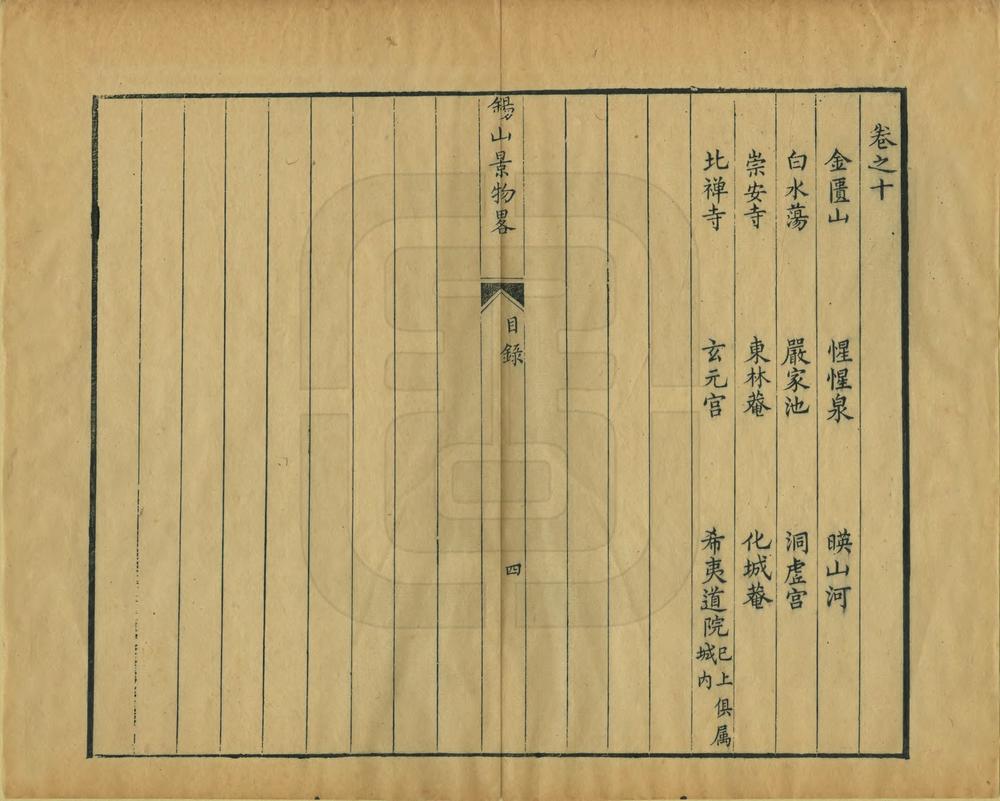 卷之十
金匱山 惺惺泉 暎山河
白水蕩 嚴家池 洞虚宫
崇安寺 東林菴 化城菴
北禅寺 玄元宫 希夷道院 已上俱属城内
錫山景物畧 目録 四